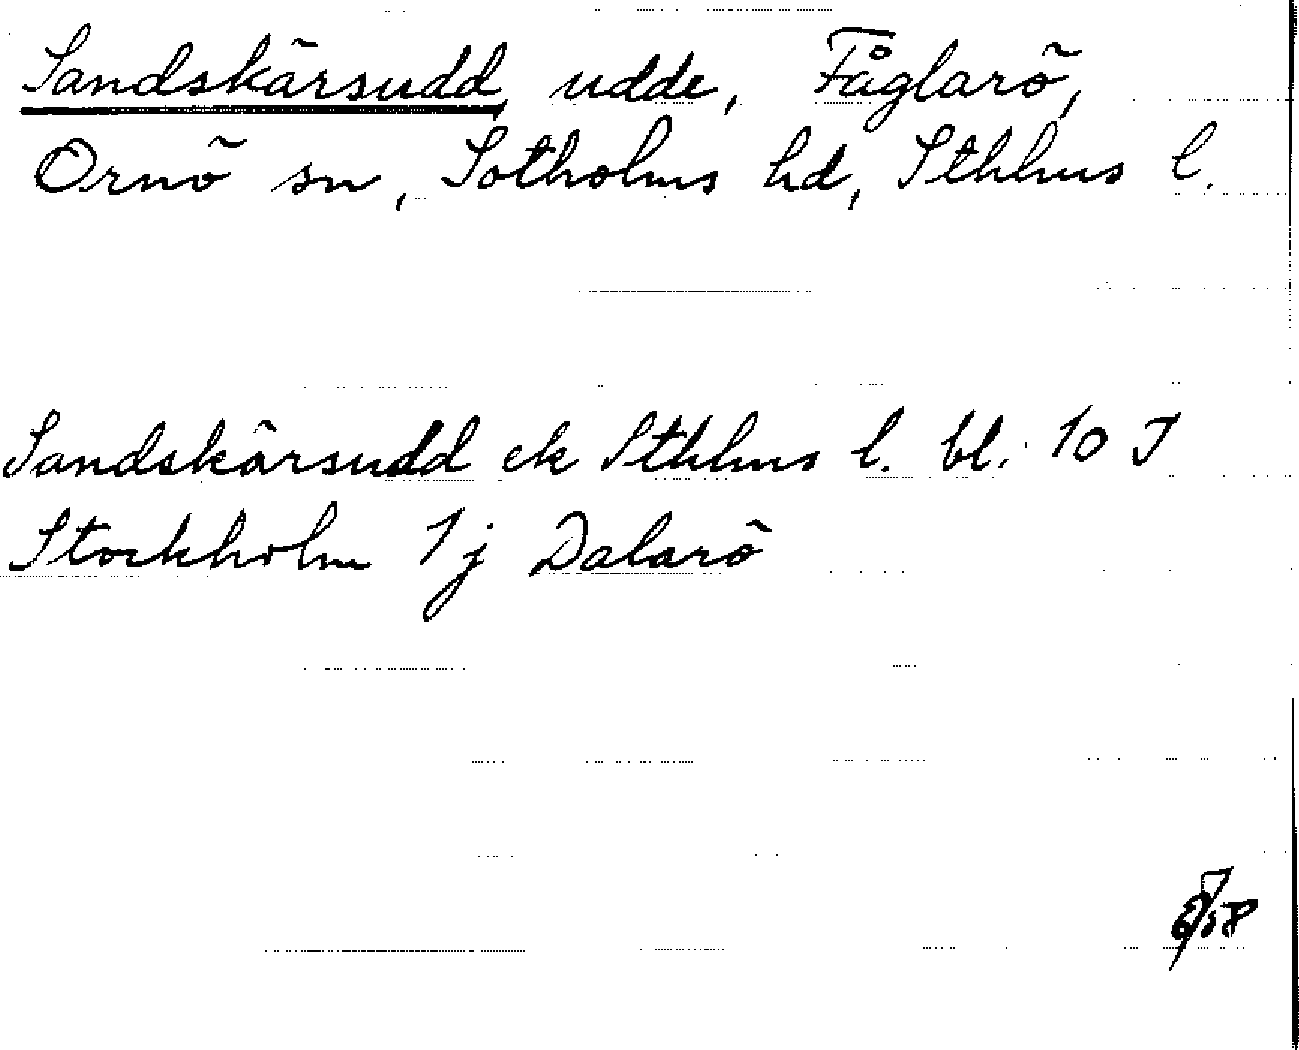 Sandskärsudd, udde, Fåglarö,
Ornö sn, Sotholms hd, Sthlms l.
Sandskärsudd ek Sthlms l. bl. 10 J
Stockholm 1j Dalarö